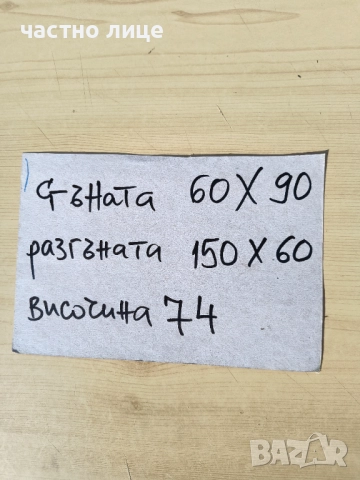 частно лице
Сгъната 60 X 90
разгъната 150 X 60
височина 74
BAZAR
bg